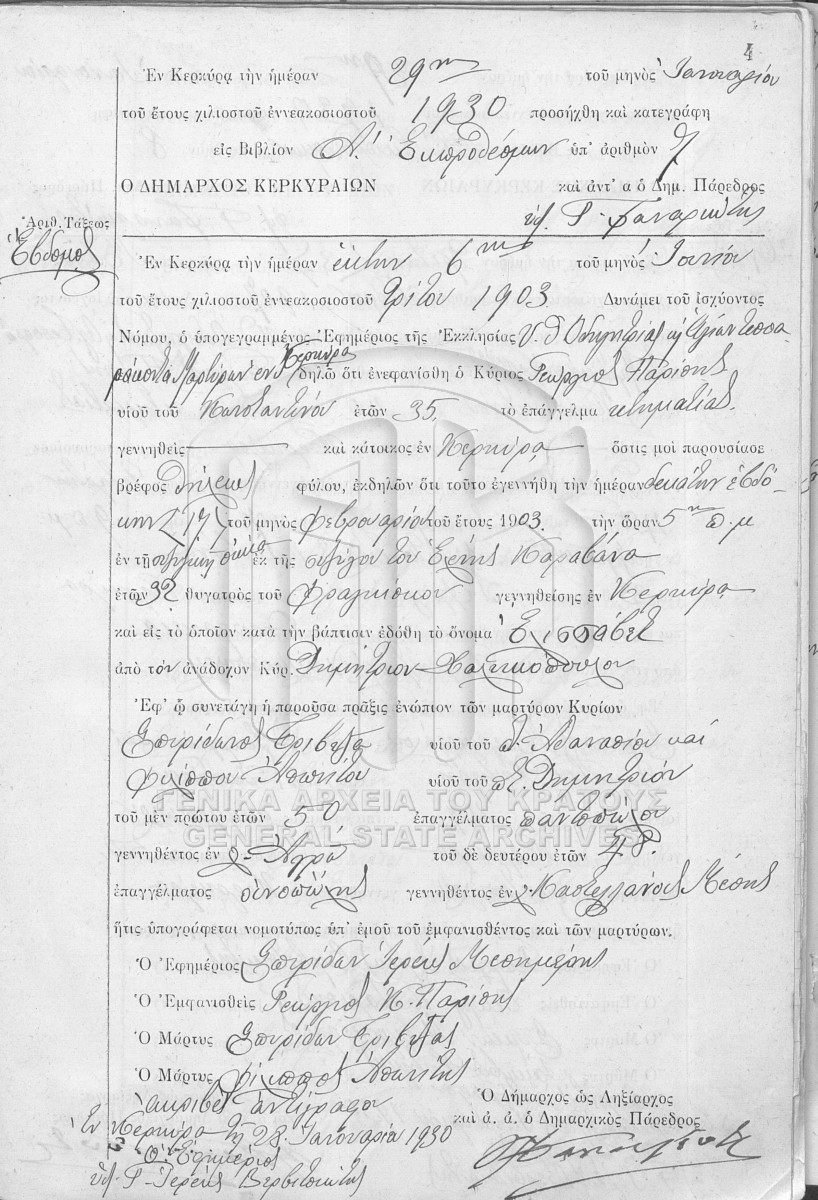 4
Ἐν Κερκύρᾳ τὴν ἡμέραν 29ην τοῦ μηνὸς Ἰανουαρίου
τοῦ ἔτους χιλιοστοῦ ἐννεακοσιοστοῦ 1930 προσήχθη καὶ κατεγράφη
εἰς Βιβλίον Α' Ἐκπροθέσμων ὑπ' ἀριθμὸν 7
Ο ΔΗΜΑΡΧΟΣ ΚΕΡΚΥΡΑΙΩΝ καὶ ἀντ' α ὁ Δημ. Πάρεδρος
Ἀριθ. Τάξεως
Ἕβδομος
Ἐν Κερκύρᾳ τὴν ἡμέραν ἕκτην 6ην τοῦ μηνὸς
τοῦ ἔτους χιλιοστοῦ ἐννεακοσιοστοῦ τρίτου 1903 Δυνάμει τοῦ ἰσχύοντος
Νόμου, ὁ ὑπογεγραμμένος Ἐφημέριος τῆς Ἐκκλησίας Υ. Θ. Ὁδηγητρίας κ Ἁγίων Τεσσα
ράκοντα Μαρτύρων ἐν Κερκύρᾳ δηλῶ ὅτι ἐνεφανίσθη ὁ Κύριος Γεώργιος Παρίσης
υἱοῦ τοῦ Κωνσταντίνου ἐτῶν 35 τὸ ἐπάγγελμα κτηματίας
γεννηθεὶς καὶ κάτοικος ἐν Κερκύρᾳ ὅστις μοὶ παρουσίασε
βρέφος θήλεως φύλου, ἐκδηλῶν ὅτι τοῦτο ἐγεννήθη τὴν ἡμέραν δεκάτην ἑβδό-
μην (17) τοῦ μηνὸς Φεβρουαρίου τοῦ ἔτους 1903. τὴν ὥραν 5ην π.μ
ἐν τῇ οἰκίᾳ ἐκ τῆς συζύγου του Ἑλένης Καραβάνα
ἐτῶν 32 θυγατρὸς τοῦ Φραγκίσκου γεννηθείσης ἐν Κερκύρᾳ
καὶ εἰς τὸ ὁποῖον κατὰ τὴν βάπτισιν ἐδόθη τὸ ὄνομα Ἐλισσάβετ
ἀπὸ τὸν ἀνάδοχον Κύρ. Δημήτριον Χαλικιόπουλον
Ἐφ' ᾧ συνετάγη ἡ παροῦσα πρᾶξις ἐνώπιον τῶν μαρτύρων Κυρίων
Σπυρίδωνος Τριβυζᾶ υἱοῦ τοῦ Ἀθανασίου καὶ
Φιλίππου υἱοῦ τοῦ Δημητρίου
τοῦ μὲν πρώτου ἐτῶν 50 ἐπαγγέλματος παντοπώλου
ΓΕΝΙΚΑ ΑΡΧΕΙΑ ΤΟΥ ΚΡΑΤΟΥΣ
GENERAL STATE ARCHIVES
γεννηθέντος ἐν χ. Ἀγρᾶ τοῦ δὲ δευτέρου ἐτῶν 48.
ἐπαγγέλματος οἰνοπώλης γεννηθέντος ἐν χ. Καστελλάνους Μέσης
ἥτις ὑπογράφεται νομοτύπως ὑπ' ἐμοῦ τοῦ ἐμφανισθέντος καὶ τῶν μαρτύρων.
Ὁ Ἐφημέριος Σπυρίδων Ἱερεὺς Μεσημέρης
Ὁ Ἐμφανισθεὶς Γεώργιος Κ. Παρίσης
Ὁ Μάρτυς Σπυρίδων Τριβυζᾶς
Ὁ Μάρτυς Φίλιππος
Ἀκριβὲς ἀντίγραφον
Ἐν Κερκύρᾳ τῇ 28 Ἰανουαρίου 1930
Ὁ Ἐφημέριος
Ὁ Δήμαρχος ὡς Ληξίαρχος
καὶ ἀ. ἀ. ὁ Δημαρχικὸς Πάρεδρος